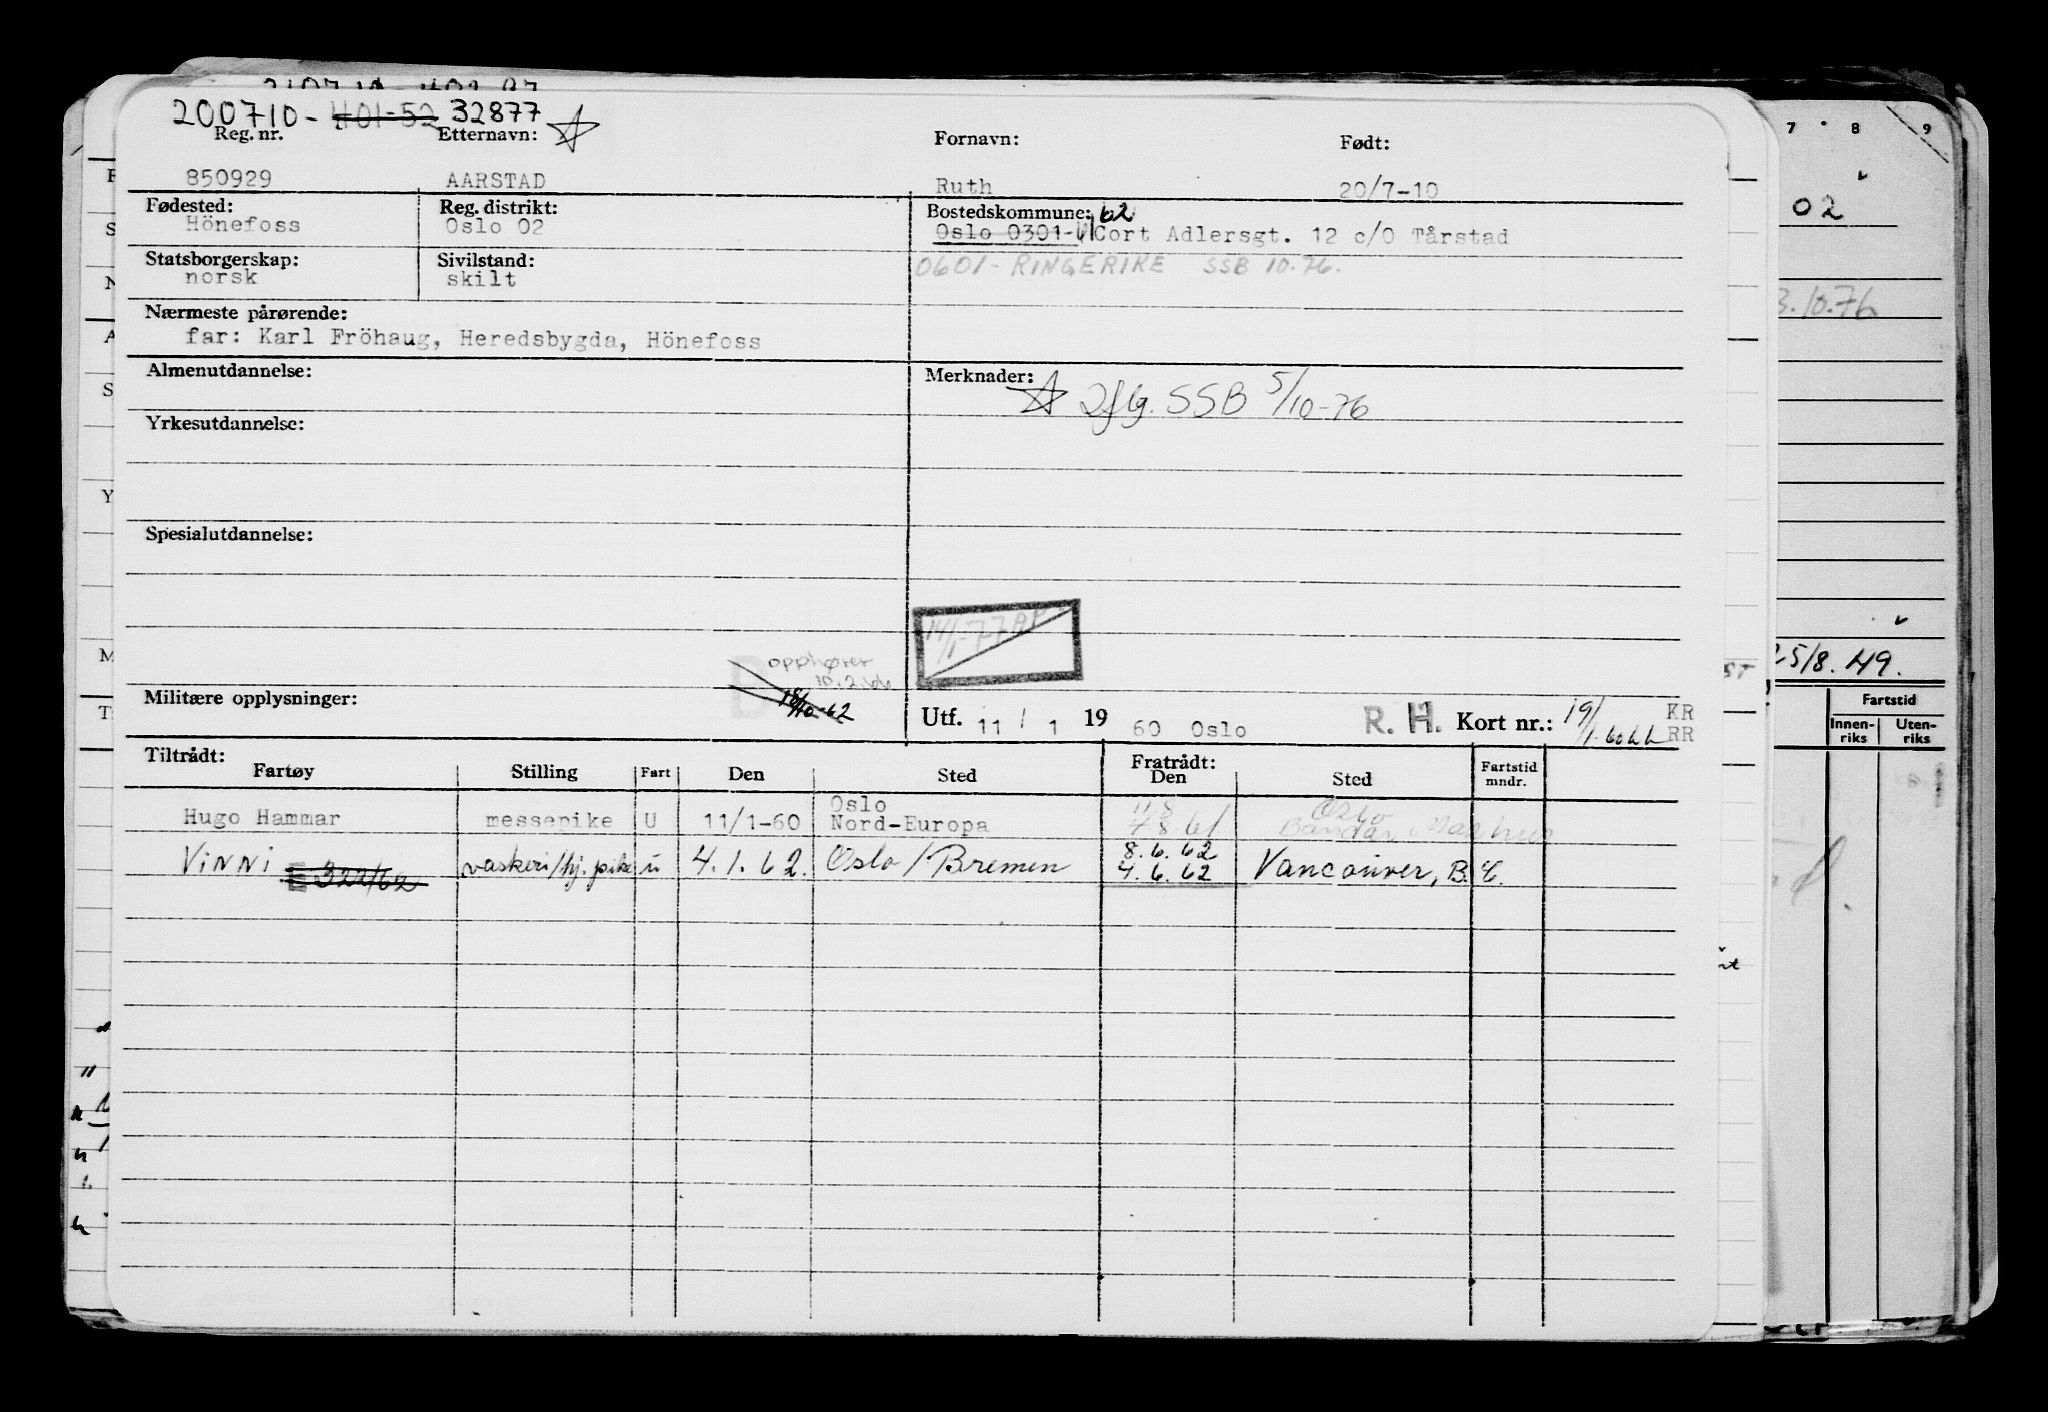 200710- 401-52 32877
Reg. nr. Etternavn: Fornavn: Født:
850929 AARSTAD Ruth 20/7-10
Fødested: Reg. distrikt: Bostedskommune: 62
Hönefoss Oslo 02 Oslo 0301-61 Cort Adlersgt. 12 c/O Tårstad
Statsborgerskap: Sivilstand: 0601- RINGERIKE SSB 10.76.
norsk skilt
Nærmeste pårørende:
far: Karl Fröhaug, Heredsbygda, Hönefoss
Almenutdannelse: Merknader:
Iflg. SSB 5/10-76
Yrkesutdannelse:
Spesialutdannelse:
14/1-77
opphører
10.2.66
Militære opplysninger: 62
Utf. 11 / 1 19 60 Oslo R. H. Kort nr.: 19/1-60 KR
RR
Tiltrådt: Fratrådt:
Fartøy Stilling Fart Den Sted Den Sted Fartstid mndr.
Hugo Hammar messepike U 11/1-60 Oslo Nord-Europa 8.61 Oslo
Bandar Mashur
8.6.62
Vinni E 322/62 vaskeri/hj. pike u 4.1.62. Oslo / Bremen 4.6.62 Vancouver, B.C.
7 8 9
02
3.10.76
25/8.49.
Fartstid
Innen-riks Uten-riks